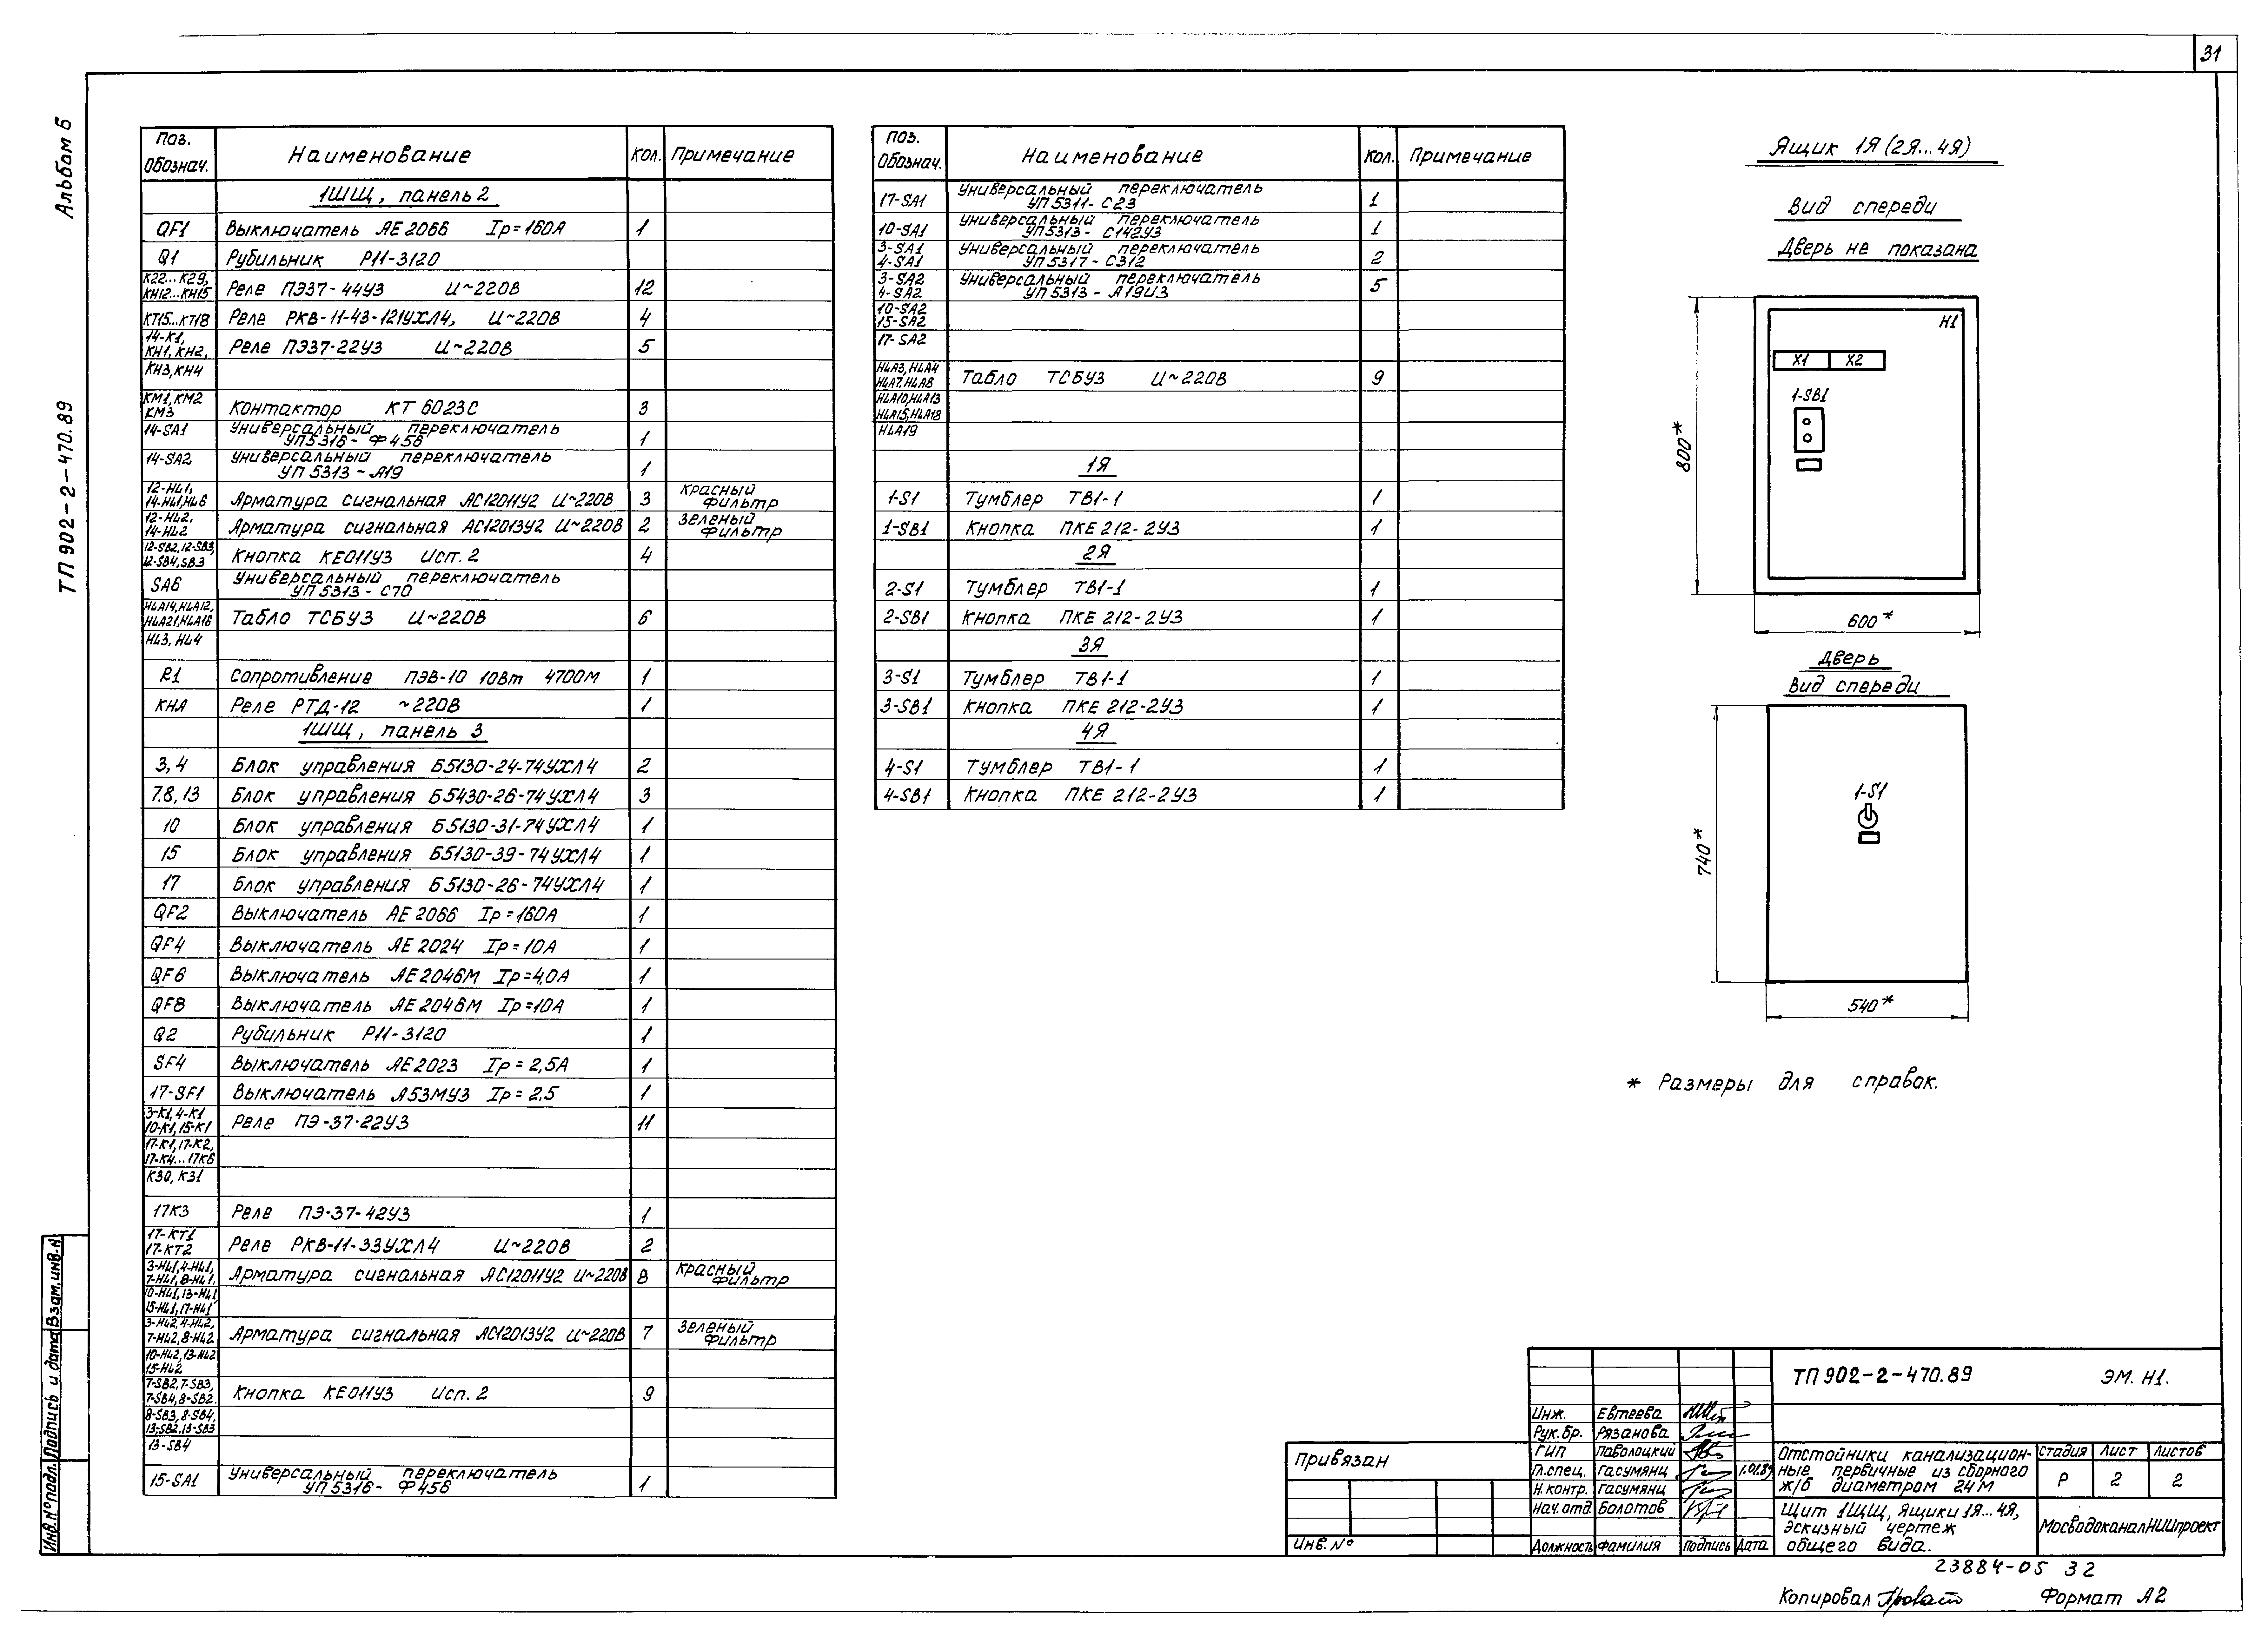 31
Альбом 6
ТП 902-2-470.89
Поз. Обознач. Наименование Кол. Примечание
1ШЩ, панель 2
QF1 Выключатель АЕ 2066 Iр=160А 1
Q1 Рубильник Р11-3120
К22...К29, КН12...КН15 Реле ПЭ37-44У3 U~220В 12
КТ15...КТ18 Реле РКВ-11-43-121УХЛ4, U~220В 4
14-К1, КН1, КН2, Реле ПЭ37-22У3 U~220В 5
КН3, КН4
КМ1, КМ2 КМ3 Контактор КТ 6023С 3
14-SA1 Универсальный переключатель УП5316-Ф456 1
14-SA2 Универсальный переключатель УП 5313-А19 1
12-HL1, 14-HL1, HL6 Арматура сигнальная АС12011У2 U~220В 3 Красный фильтр
12-HL2, 14-HL2 Арматура сигнальная АС12013У2 U~220В 2 Зеленый фильтр
12-SB2, 12-SB3, 12-SB4, SB3 Кнопка КЕ011У3 Исп. 2 4
SA6 Универсальный переключатель УП 5313-С70
HLA14, HLA12, HLA21, HLA16 Табло ТСБУ3 U~220В 6
HL3, HL4
R1 Сопротивление ПЭВ-10 10Вт 4700М 1
КНА Реле РТД-12 ~220В 1
1ШЩ, панель 3
3, 4 Блок управления Б5130-24-74УХЛ4 2
7.8, 13 Блок управления Б5430-26-74УХЛ4 3
10 Блок управления Б5130-31-74УХЛ4 1
15 Блок управления Б5130-39-74УХЛ4 1
17 Блок управления Б5130-26-74УХЛ4 1
QF2 Выключатель АЕ 2066 Iр=160А 1
QF4 Выключатель АЕ 2024 Iр=10А 1
QF6 Выключатель АЕ 2046М Iр=4,0А 1
QF8 Выключатель АЕ 2046М Iр=10А 1
Q2 Рубильник Р11-3120 1
SF4 Выключатель АЕ2023 Iр=2,5А 1
17-SF1 Выключатель А53МУ3 Iр=2.5 1
3-К1, 4-К1 10-К1, 15-К1 Реле ПЭ-37-22У3 11
17-К1, 17-К2, 17-К4...17К6
К30, К31
17К3 Реле ПЭ-37-42У3 1
17-КТ1 17-КТ2 Реле РКВ-11-33УХЛ4 U~220В 2
3-HL1, 4-HL1, 7-HL1, 8-HL1, Арматура сигнальная АС12011У2 U~220В 8 Красный фильтр
10-HL1, 13-HL1 15-HL1, 17-HL1
3-HL2, 4-HL2, 7-HL2, 8-HL2 Арматура сигнальная АС12013У2 U~220В 7 Зеленый фильтр
10-HL2, 13-HL2 15-HL2
7-SB2, 7-SB3, 7-SB4, 8-SB2. Кнопка КЕ011У3 Исп. 2 9
8-SB3, 8-SB4, 13;SB2, 13-SB3
13-SB4
15-SA1 Универсальный переключатель УП5316-Ф456 1
Поз. Обознач. Наименование Кол. Примечание
17-SA1 Универсальный переключатель УП5311-С23 1
10-SA1 Универсальный переключатель УП5313-С142У3 1
3-SA1 4-SA1 Универсальный переключатель УП5317-С312 2
3-SA2 4-SA2 Универсальный переключатель УП5313-А19У3 5
10-SA2 15-SA2
17-SA2
HLA3, HLA4 HLA7, HLA8 Табло ТСБУ3 U~220В 9
HLA10, HLA13 HLA15, HLA18
HLA19
1Я
1-S1 Тумблер ТВ1-1 1
1-SB1 Кнопка ПКЕ 212-2У3 1
2Я
2-S1 Тумблер ТВ1-1 1
2-SB1 Кнопка ПКЕ 212-2У3 1
3Я
3-S1 Тумблер ТВ1-1 1
3-SB1 Кнопка ПКЕ 212-2У3 1
4Я
4-S1 Тумблер ТВ1-1 1
4-SB1 Кнопка ПКЕ 212-2У3 1
Ящик 1Я (2Я...4Я)
Вид спереди
Дверь не показана
Н1
Х1 Х2
1-SB1
800*
600*
Дверь
Вид спереди
1-S1
740*
540*
* Размеры для справок.
Инв.№подл. Подпись и дата Взам.инв.н
Привязан
Инв. №
ТП 902-2-470.89 ЭМ. Н1.
Инж. Евтеева
Рук.бр. Рязанова
ГИП Паволоцкий
Гл.спец. Гасумянц 1.01.89
Н.контр. Гасумянц
Нач.отд. Болотов
Должность Фамилия Подпись Дата
Отстойники канализацион-
ные первичные из сборного
ж/б диаметром 24м
Стадия Лист Листов
Р 2 2
Щит 1ЩЩ, Ящики 1Я...4Я,
эскизный чертеж
общего вида.
МосводоканалНИИпроект
23884-05 32
Копировал
Формат А2